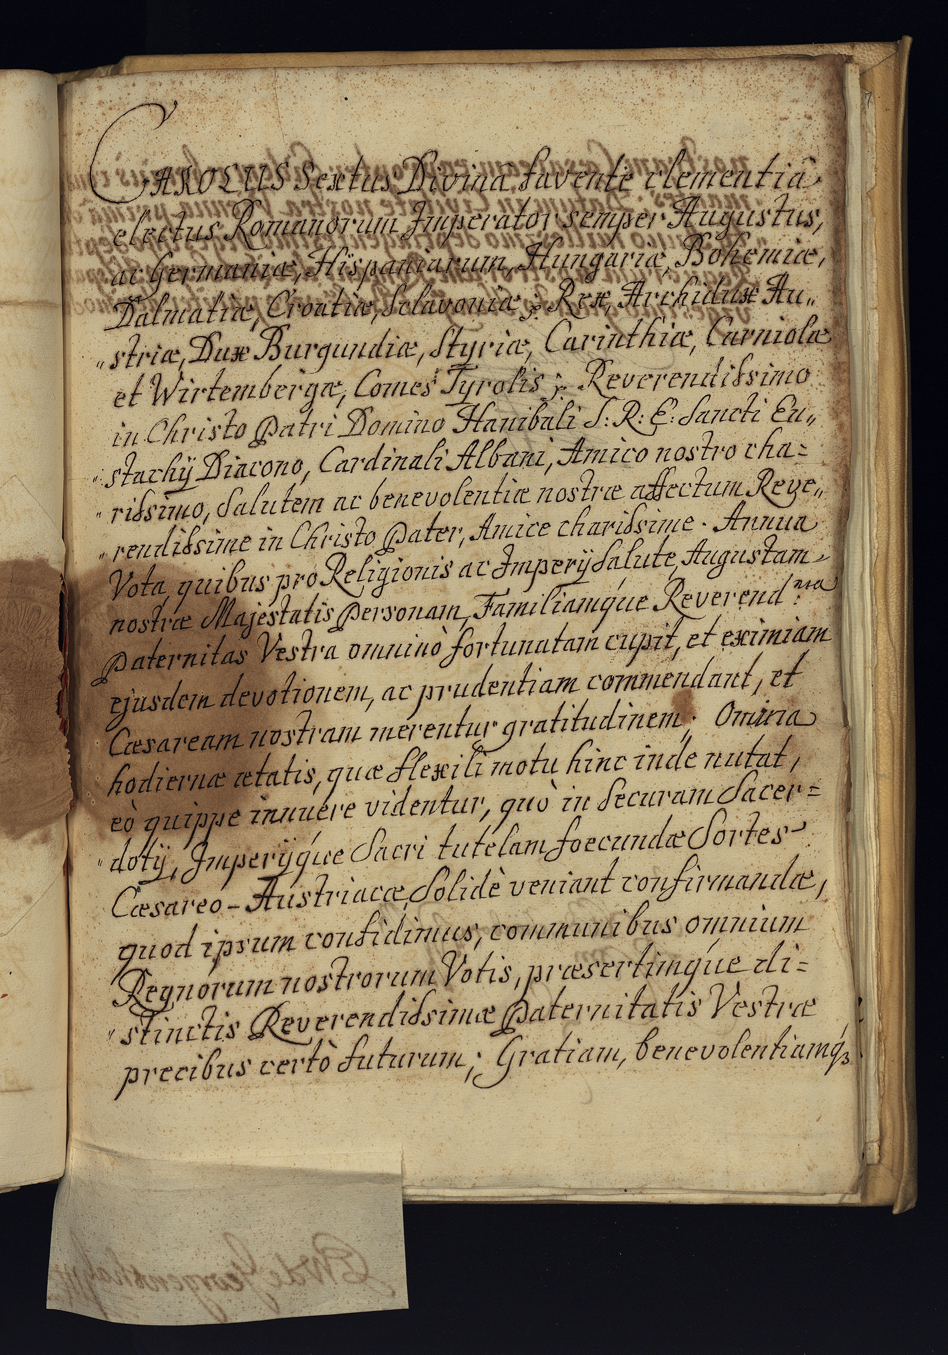 CAROLUS Sextus Divinâ favente clementiâ
electus Romanorum Imperator semper Augustus,
ac Germaniæ, Hispaniarum, Hungariæ, Bohemiæ,
Dalmatiæ, Croatiæ, Sclavoniæ, Rex, Archidux Au„
„striæ, Dux Burgundiæ, Styriæ, Carinthiæ, Carniolæ
et Wirtembergæ, Comes Tyrolis; Reverendissimo
in Christo Patri Domino Hanibali S: R: E: Sancti Eu„
„stachÿ Diacono, Cardinali Albani, Amico nostro cha=
„rissimo, Salutem ac benevolentiæ nostræ affectum Reve„
„rendissime in Christo Pater, Amice charissime. Annua
Vota, quibus pro Religionis ac Imperÿ Salute, Augustam
nostræ Majestatis Personam, Familiamque Reverend:ma
Paternitas Vestra omninò fortunatam cupit, et eximiam
ejusdem devotionem, ac prudentiam commendant, et
Cæsaream nostram merentur gratitudinem; Omnia
hodiernæ ætatis, quæ flexili motu hinc inde nutat,
eò quippe innuere videntur, quò in Securam Sacer=
„dotÿ, Imperÿque Sacri tutelam foecundæ Sortes
Cæsareo-Austriacæ Solidè veniant confirmandæ,
quod ipsum confidimus, communibus omnium
Regnorum nostrorum Votis, præsertimque di=
„stinctis Reverendissimæ Paternitatis Vestræ
precibus certò futurum; Gratiam, benevolentiamq́ȝ